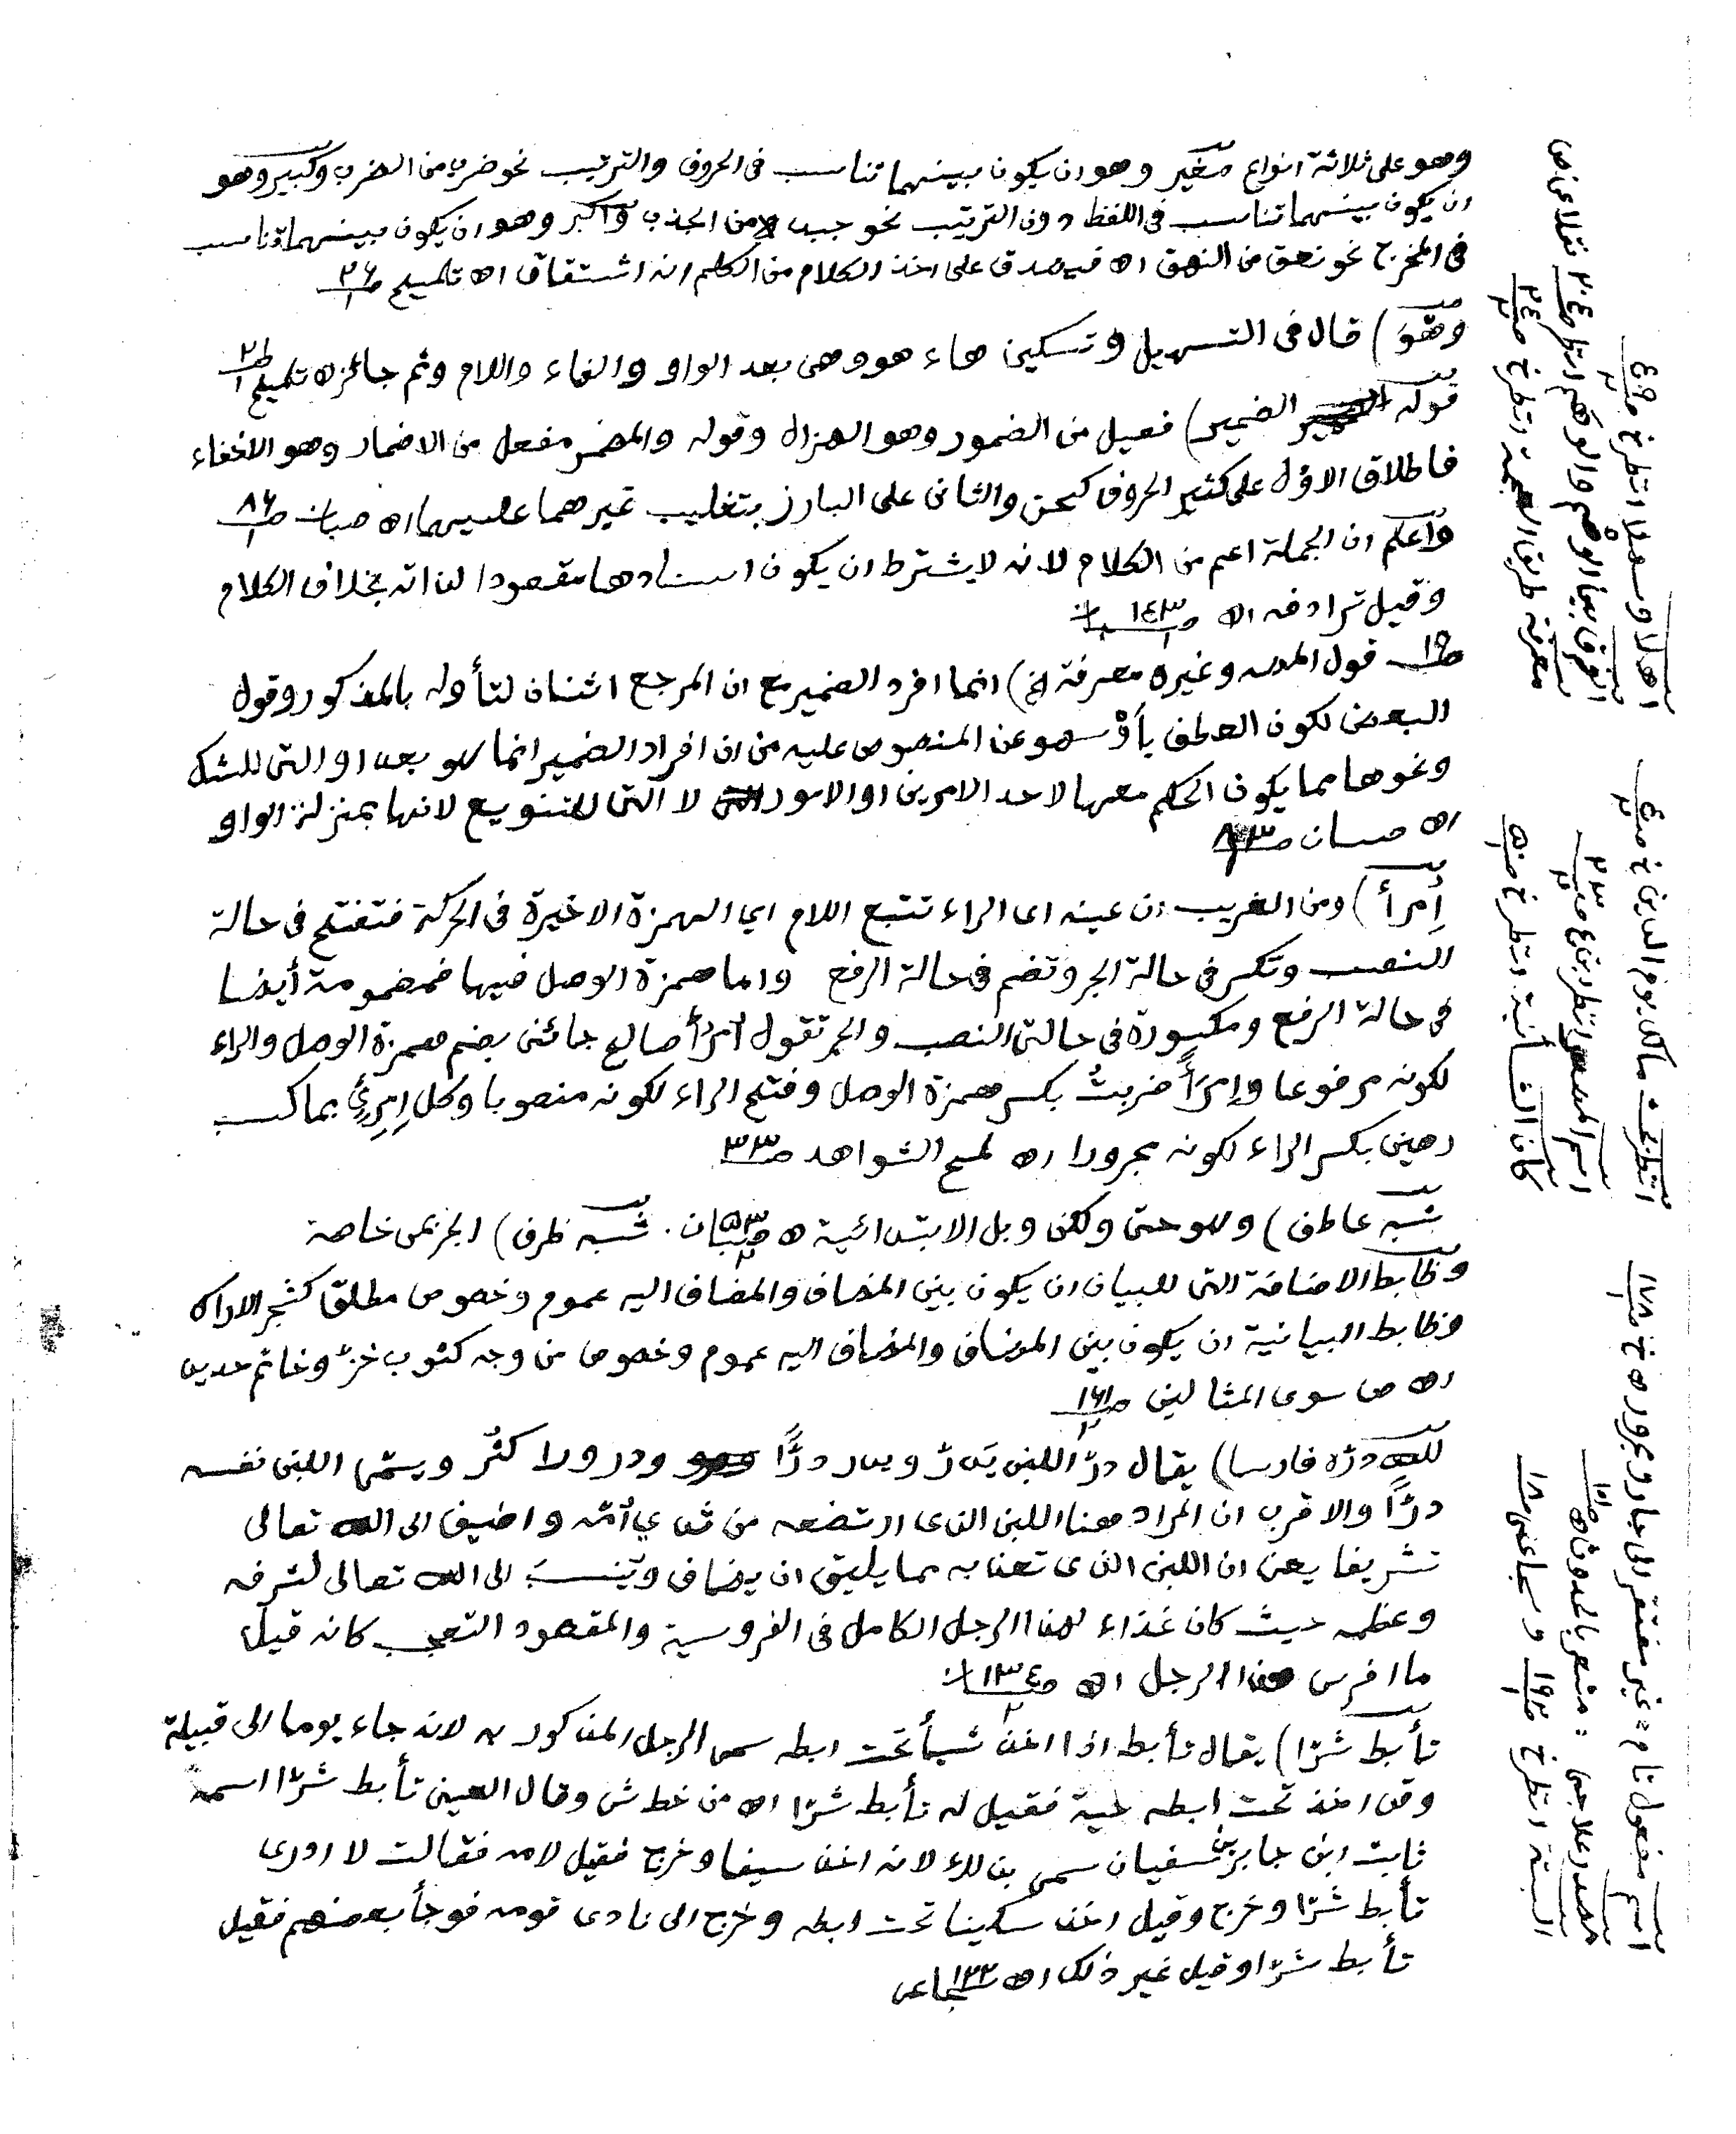 وهو على ثلاثة انواع صغير وهو ان يكون بينهما تناسب فى الحروف والترتيب نحو ضرب من الضرب وكبير وهو
ان يكون بينهما تناسب فى اللفظ دون الترتيب نحو جبذ من الجذب واكبر وهو ان يكون بينهما تناسب
فى المخرج نحو نعق من النهق اه فيصدق على اخذ الكلام من الكلم انه اشتقاق اه تلميح ص٢٦
وهْوَ) قال فى التسهيل وتسكين هاء هو وهى بعد الواو والفاء واللام وثم جائز اه تلميح
قوله الضمير) فعيل من الضمور وهو الهزال وقوله والمضمر مفعل من الاضمار وهو الاخفاء
فاطلاق الاوّل على كثير الحروف كنحن والثانى على البارز بتغليب غيرهما عليهما اه صبان ص٨٦
واعلم ان الجملة اعم من الكلام لانه لا يشترط ان يكون اسنادها مقصودا لذاته بخلاف الكلام
وقيل ترادفه اه ص١٤٣
ص١٩ قول المص وغيره معرفة الخ) انما افرد الضمير مع ان المرجع اثنان لتأوله بالمذكور وقول
البعض لكون العطف بأوْ سهو عن المنصوص عليه من ان افراد الضمير انما هو بعد او التى للشك
ونحوها مما يكون الحكم معها لاحد الامرين او الامور لا التى للتنويع لانها بمنزلة الواو
اه صبان
اِمرأ) ومن الغريب ان عينه اى الراء تتبع اللام اى الهمزة الاخيرة فى الحركة فتفتح فى حالة
النصب وتكسر فى حالة الجر وتضم فى حالة الرفع واما همزة الوصل فيها فمضمومة أيضا
فى حالة الرفع ومكسورة فى حالتى النصب والجر تقول اُمرُأ صالح جائنى بضم همزة الوصل والراء
لكونه مرفوعا وإمرَأً ضربتُ بكسر همزة الوصل وفتح الراء لكونه منصوبا وكل اِمرِئٍ بما كسب
رهين بكسر الراء لكونه مجرورا اه لمح الشواهد ص٣٣
شبه عاطف) وهو حتى ولكن وبل الابتدائية اه صبان . شبه ظرف) الجزئى خاصة
وظابط الاضافة التى للبيان ان يكون بين المضاف والمضاف اليه عموم وخصوص مطلق كشجر الاراك
وظابط البيانية ان يكون بين المضاف والمضاف اليه عموم وخصوص من وجه كثوب خزّ وخاتم حديد
اه ص سوى المثالين ص١٦١
لله درّه فارسا) يقال درّ اللبن يَدرّ ويدر درًّا ودرورا كثُر ويسمّى اللبن نفسه
درًّا والاقرب ان المراد هنا اللبن الذى ارتضعه من ثدي اُمّه واضيف الى الله تعالى
تشريفا يعنى ان اللبن الذى تغذا به مما يليق ان يضاف وينسب الى الله تعالى لشرفه
وعظمه حيث كان غذاء لهذا الرجل الكامل فى الفروسية والمقصود التعجب كانه قيل
ما افرس هذا الرجل اه ص١٣٤
تأبط شرّا) يقال تأبط اذا اخذ شيأ تحت ابطه سمى الرجل المذكور به لانه جاء يوما الى قبيلة
وقد اخذ تحت ابطه حية فقيل له تأبط شرّا اه من خط ش وقال العينى تأبط شرّا اسمه
ثابت ابن جابر بن سفيان سمى بذلك لانه اخذ سيفا وخرج فقيل لامه فقالت لا ادرى
تأبط شرّا وخرج وقيل اخذ سكينا تحت ابطه وخرج الى نادى قومه فوجأ بعضهم فقيل
تأبط شرّا وقيل غير ذلك اه سجاعى
اهلا وسهلا انظر خ ص٤٩
الفرق بين الوهْم والوهَم انظر ص٢٠٤ نقلا عن ص
معرفة طريق العجمة انظر خ ص٢٤
انظر بحث مالك يوم الدين خ
اسم المصدر انظر
كان الشأنية انظر خ ص٥٠
اسم مفعول تام = غير مفتقر الى جار ومجرور اه خ ص١٧٨
مصدر علاجى = مشعر بالحدوث اه ص١٥١
البتة انظر خ ص١٩٢ وسجاعى ص١٨